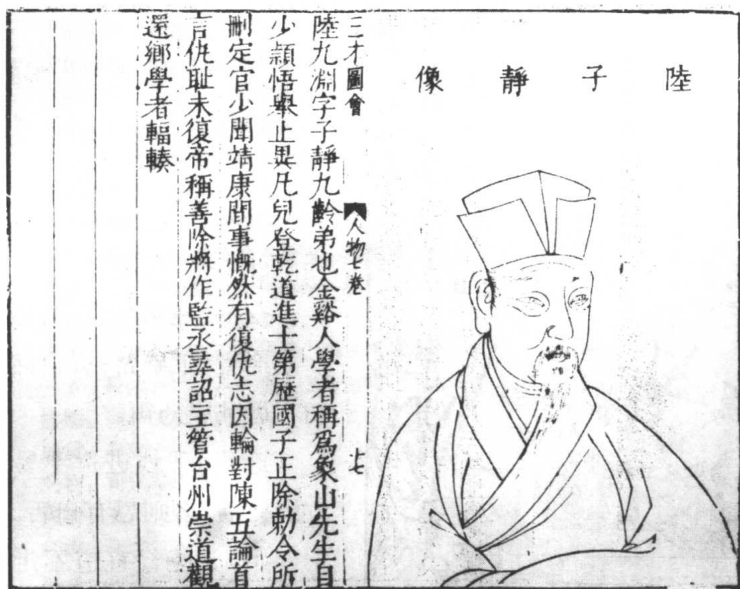 陸子靜像
三才圖會
人物七卷
十七
陸九淵字子靜九齡弟也金谿人學者稱為象山先生自
少穎悟舉止異凡兒登乾道進士第歷國子正除勅令所
刪定官少聞靖康間事慨然有復仇志因輪對陳五論首
言仇耻未復帝稱善除將作監丞尋詔主管台州崇道觀
還鄉學者輻輳